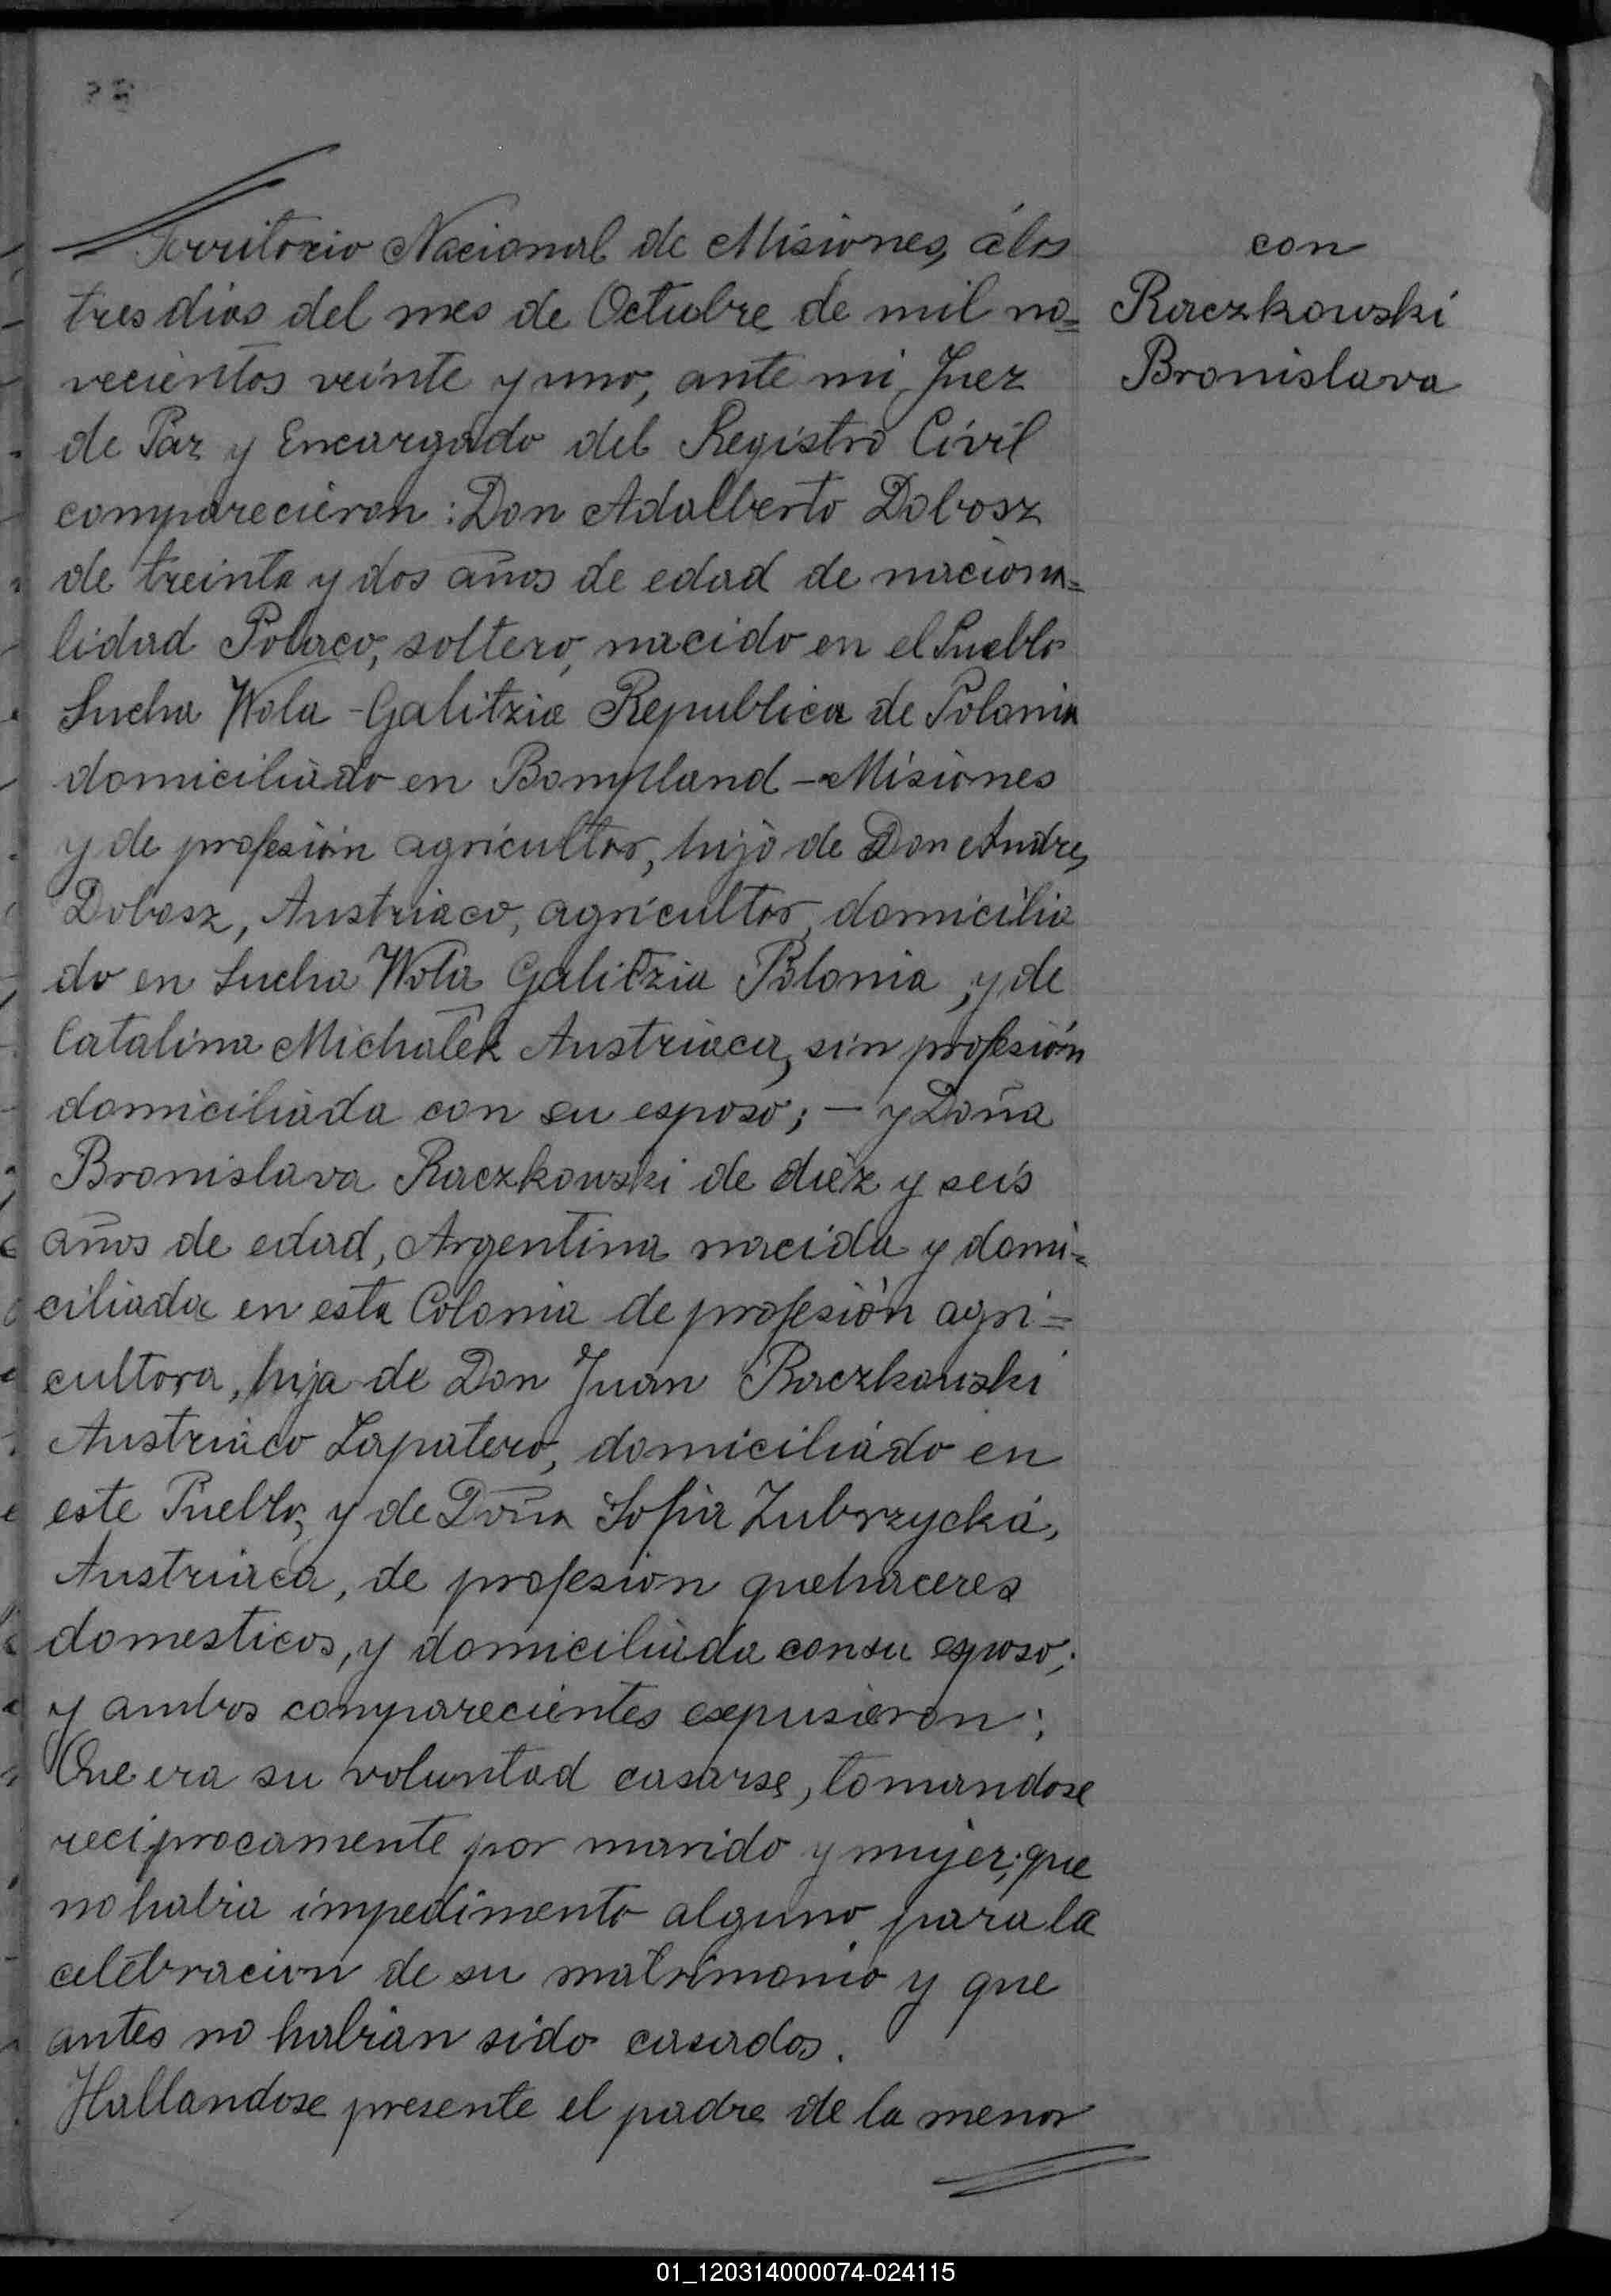 Territorio Nacional de Misiones, á los
tres dias del mes de Octubre de mil no=
vecientos veinte y uno, ante mi, Juez
de Paz y Encargado del Registro Civil
comparecieron: Don Adalberto Dobosz
de treinta y dos años de edad de naciona=
lidad Polaco, soltero, nacido en el Pueblo
Sucha Wola - Galitzia Republica de Polonia
domiciliado en Bompland - Misiones
y de profesión agricultor, hijo de Don Andres
Dobosz, Austriaco, agricultor, domicilia
do en Sucha Wola Galitzia Polonia, y de
Catalina Michalek Austriaca, sin profesión
domiciliada con su esposo; — y Doña
Bronislava Raczkowski de diez y seis
años de edad, Argentina nacida y domi=
ciliada en esta Colonia de profesión agri=
cultora, hija de Don Juan Raczkowski
Austriaco Zapatero, domiciliado en
este Pueblo, y de Doña Sofia Zubrzycka,
Austriaca, de profesion quehaceres
domesticos, y domiciliada con su esposo;
y ambos comparecientes expusieron:
Que era su voluntad casarse, tomandose
reciprocamente por marido y mujer; que
no habia impedimento alguno para la
celebracion de su matrimonio y que
antes no habian sido casados.
Hallandose presente el padre de la menor
con
Raczkowski
Bronislava
01_120314000074-024115